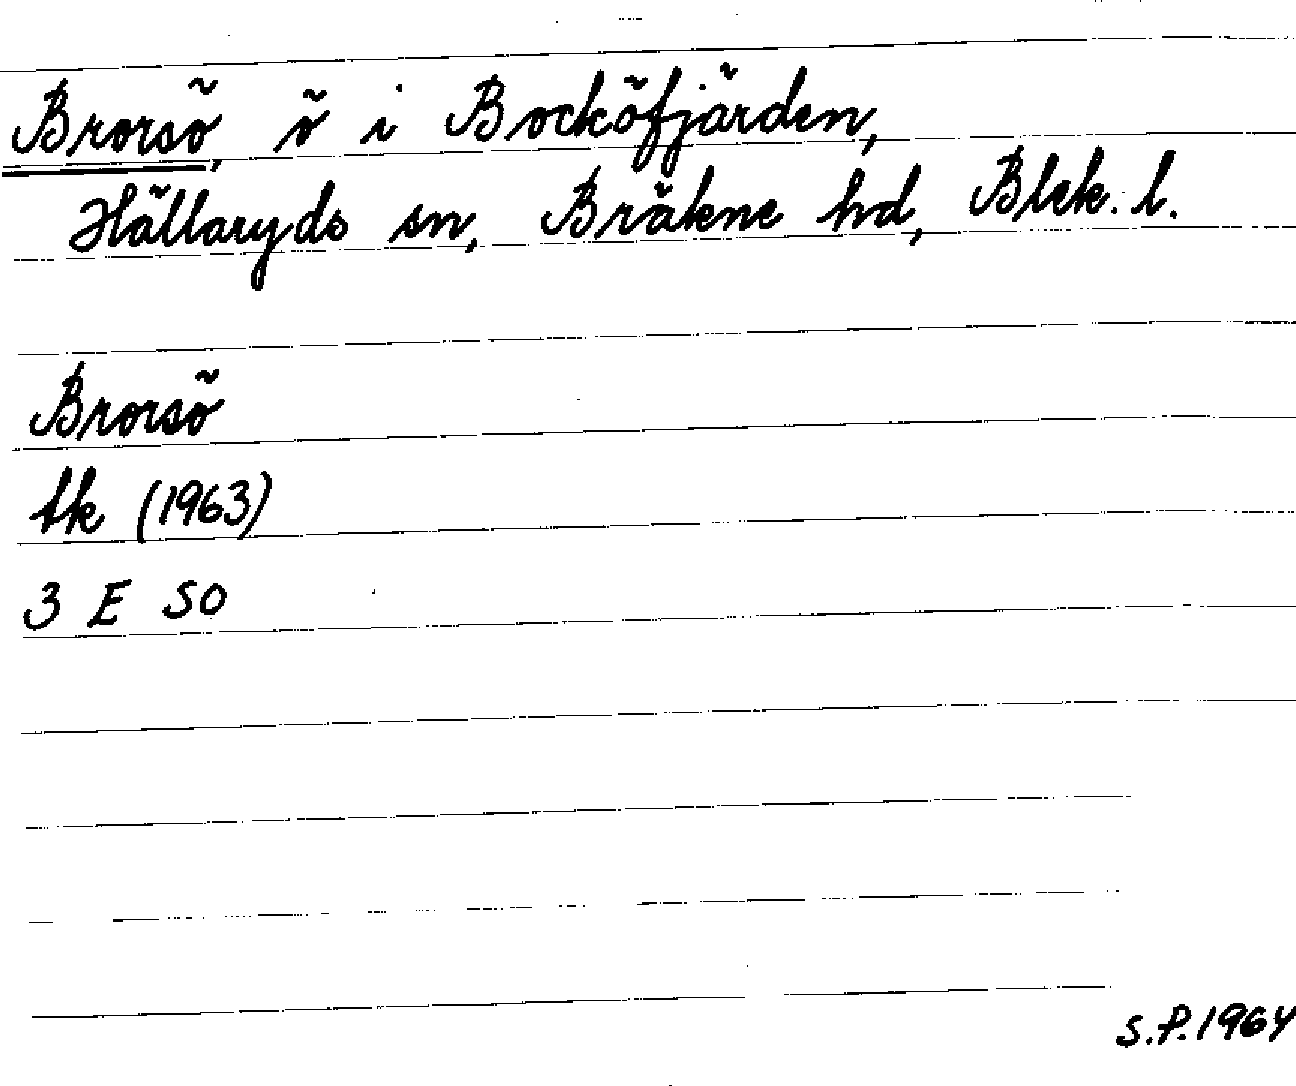 Brorsö, ö i Bocköfjärden,
Hällaryds sn, Bräkne hd, Blek. l.
Brorsö
tk (1963)
3 E SO
S.P. 1964